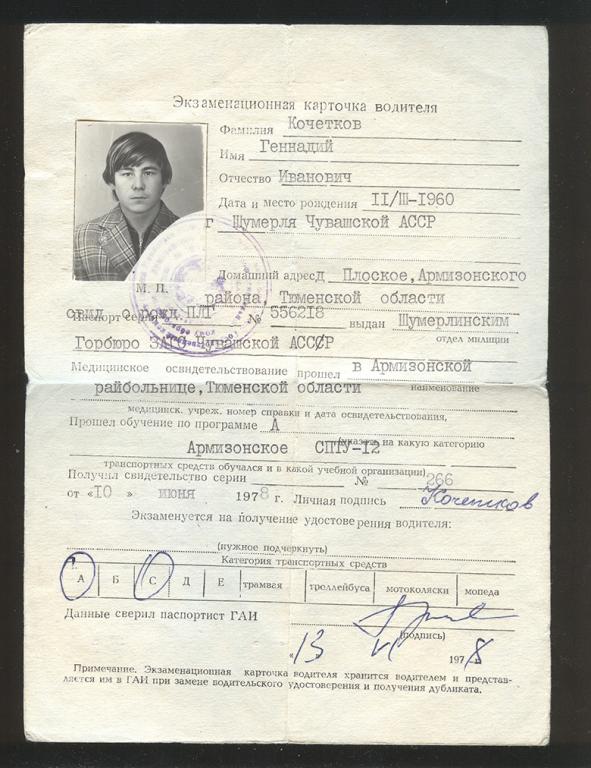 Экзаменационная карточка водителя
Фамилия Кочетков
Имя Геннадий
Отчество Иванович
Дата и место рождения II/III-I960
г Шумерля Чувашской АССР
Домашний адрес д Плоское,Армизонского
М. П. района,Тюменской области
Паспорт серии свид о рожд ПЛГ № 556218 выдан Шумерлинским
Горбюро ЗАГС Чувашской АССР отдел милиции
Медицинское освидетельствование прошел в Армизонской
райбольнице,Тюменской области наименование
медицинск. учреж. номер справки и дата освидетельствования,
Прошел обучение по программе А
(указать на какую категорию
Армизонское СПТУ-I2
транспортных средств обучался и в какой учебной организации)
Получил свидетельство серии № 266
от «I0» июня 1978 г. Личная подпись Кочетков
Экзаменуется на получение удостоверения водителя:
(нужное подчеркнуть)
Категория транспортных средств
А Б С Д Е трамвая троллейбуса мотоколяски мопеда
Данные сверил паспортист ГАИ
(подпись)
«13 VI 1978 г.
Примечание. Экзаменационная карточка водителя хранится водителем и представ-
ляется им в ГАИ при замене водительского удостоверения и получения дубликата.